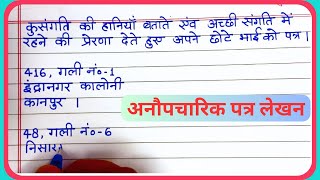 कुसंगति की हानियाँ बताते एंव अच्छी संगति में
रहने की प्रेरणा देते हुए अपने छोटे भाई को पत्र ।
416, गली नं०-1
इंद्रानगर कालोनी
कानपुर ।
अनौपचारिक पत्र लेखन
48, गली नं०-6
निसार